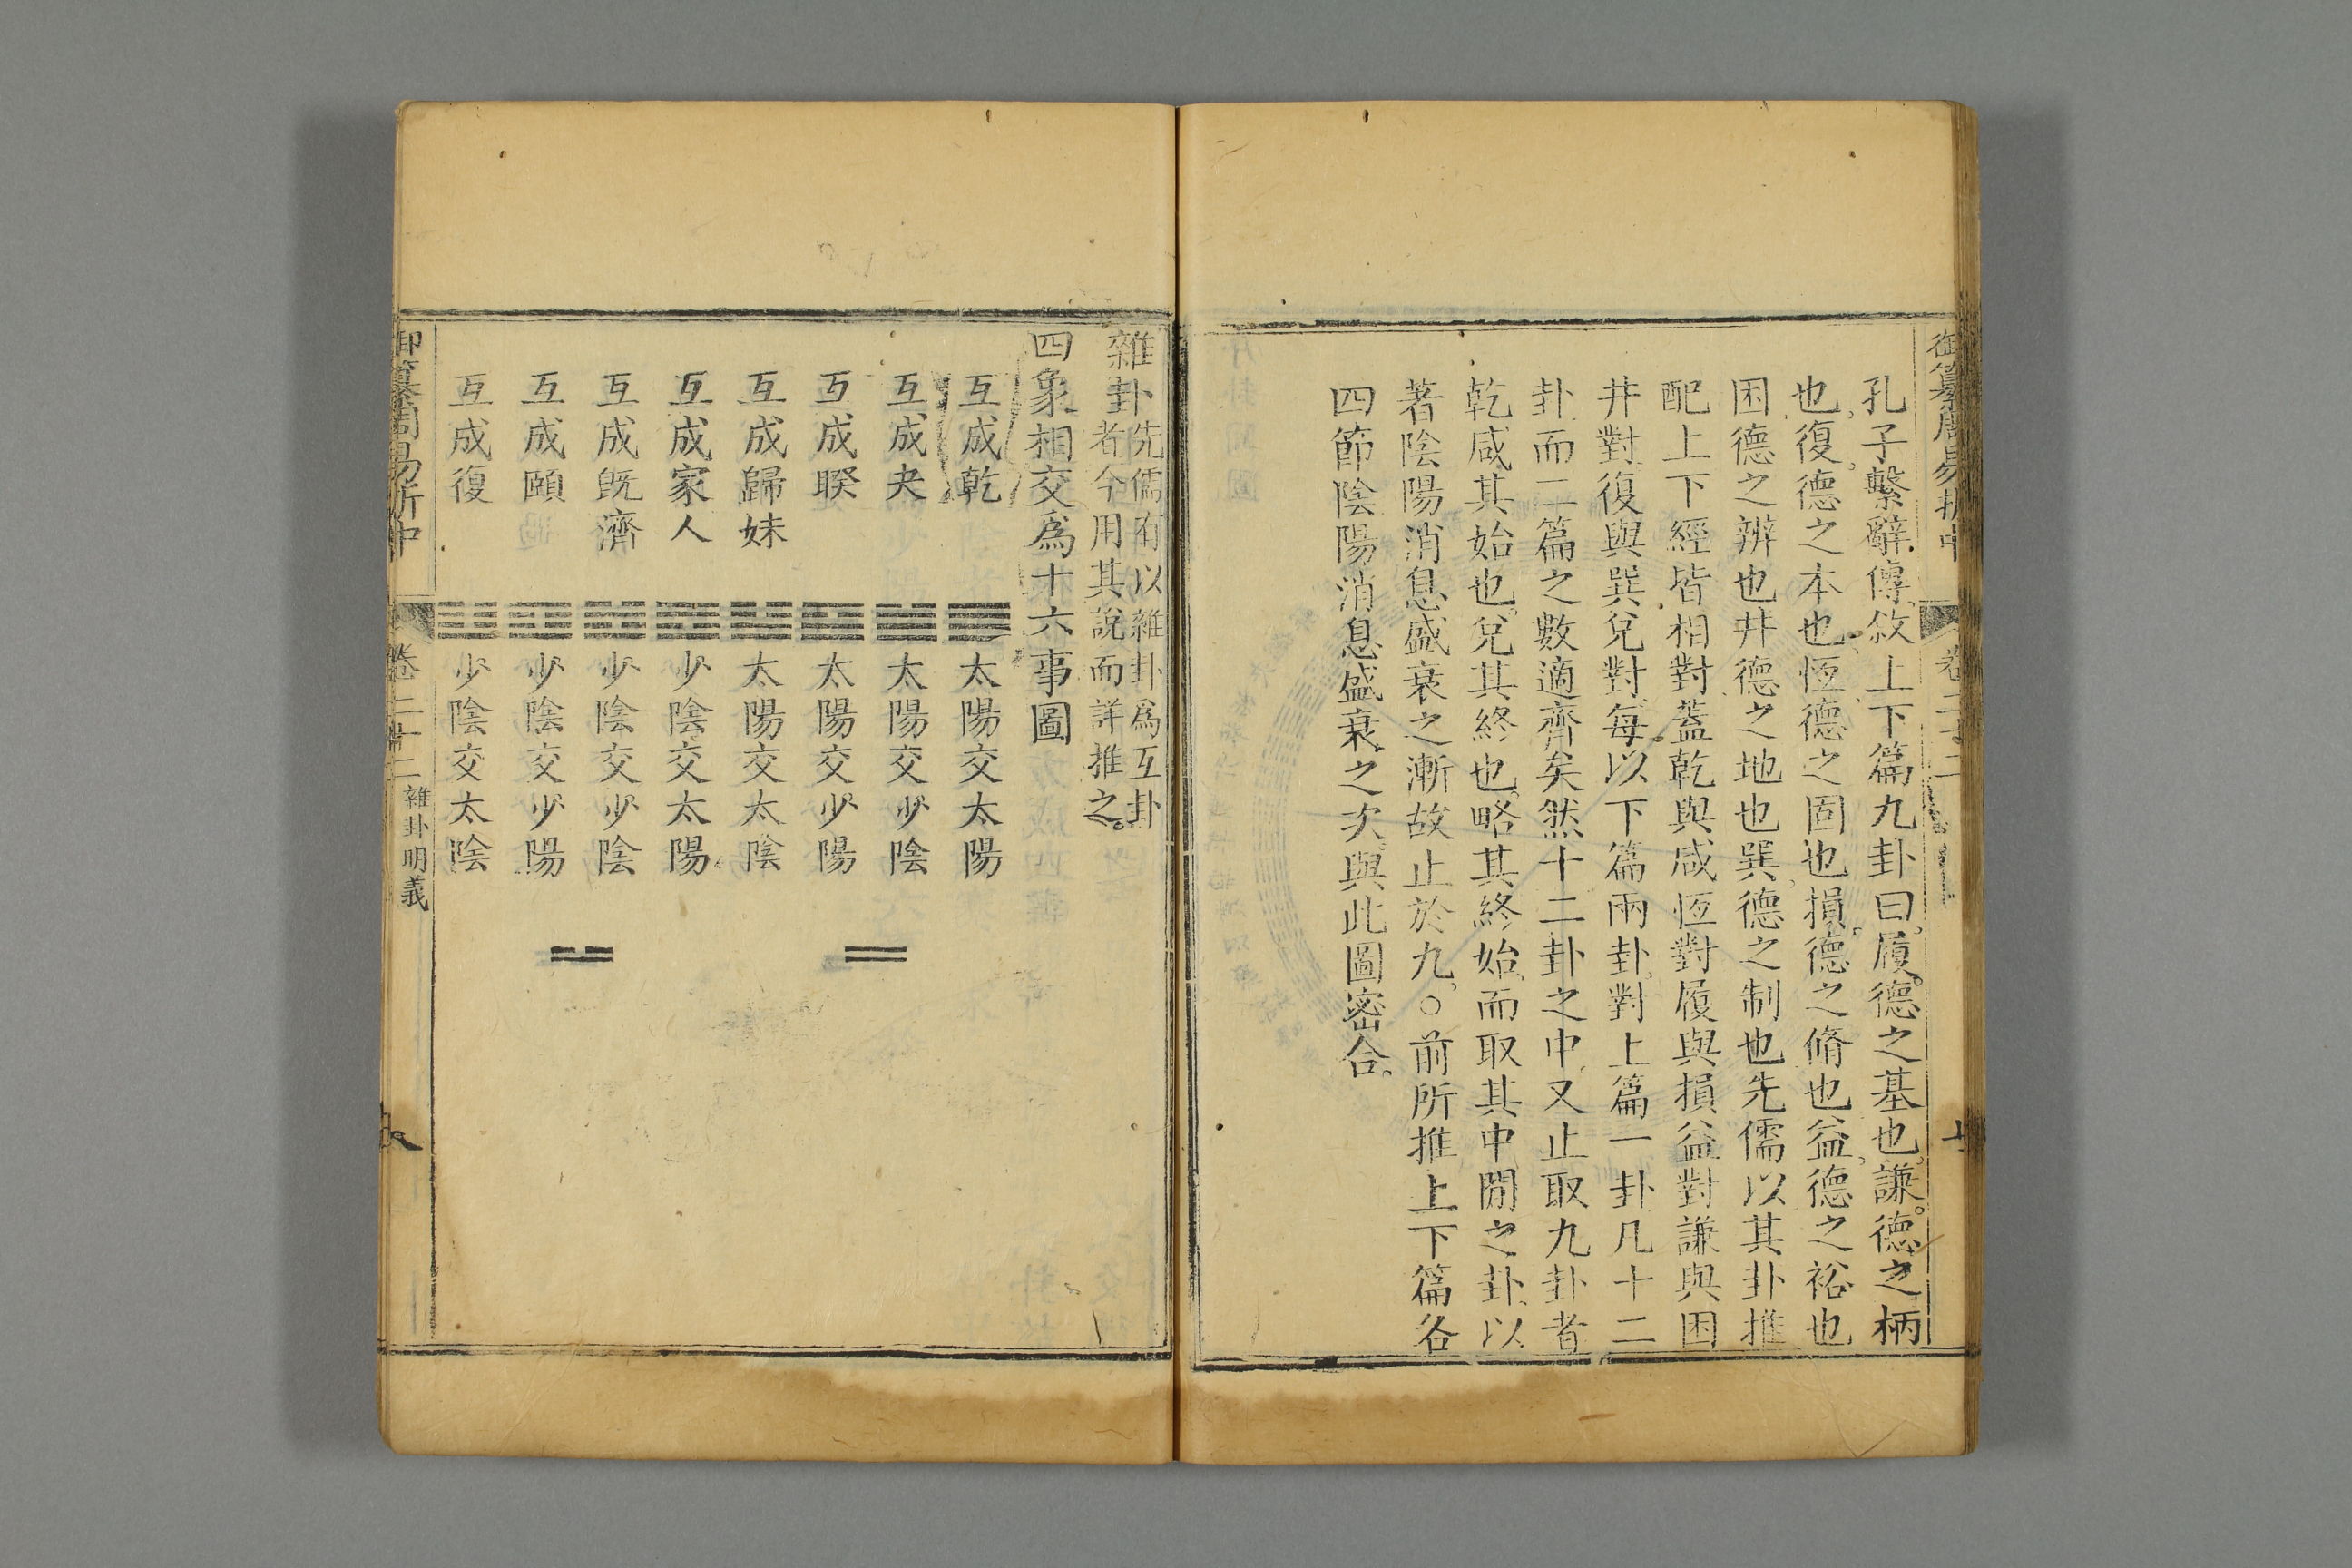 御纂周易折中
卷二十二
孔子繫辭傳敘上下篇九卦曰履德之基也謙德之柄
也復德之本也恆德之固也損德之脩也益德之裕也
困德之辨也井德之地也巽德之制也先儒以其卦推
配上下經皆相對蓋乾與咸恆對履與損益對謙與困
井對復與巽兌對每以下篇兩卦對上篇一卦凡十二
卦而二篇之數適齊矣然十二卦之中又止取九卦者
乾咸其始也兌其終也略其終始而取其中閒之卦以
著陰陽消息盛衰之漸故止於九○前所推上下篇各
四節陰陽消息盛衰之次與此圖密合
雜卦先儒有以雜卦爲互卦
者今用其說而詳推之
四象相交爲十六事圖
互成乾 太陽交太陽
互成夬 太陽交少陰
互成睽 太陽交少陽
互成歸妹 太陽交太陰
互成家人 少陰交太陽
互成旣濟 少陰交少陰
互成頤 少陰交少陽
互成復 少陰交太陰
御纂周易折中
卷二十二 雜卦明義